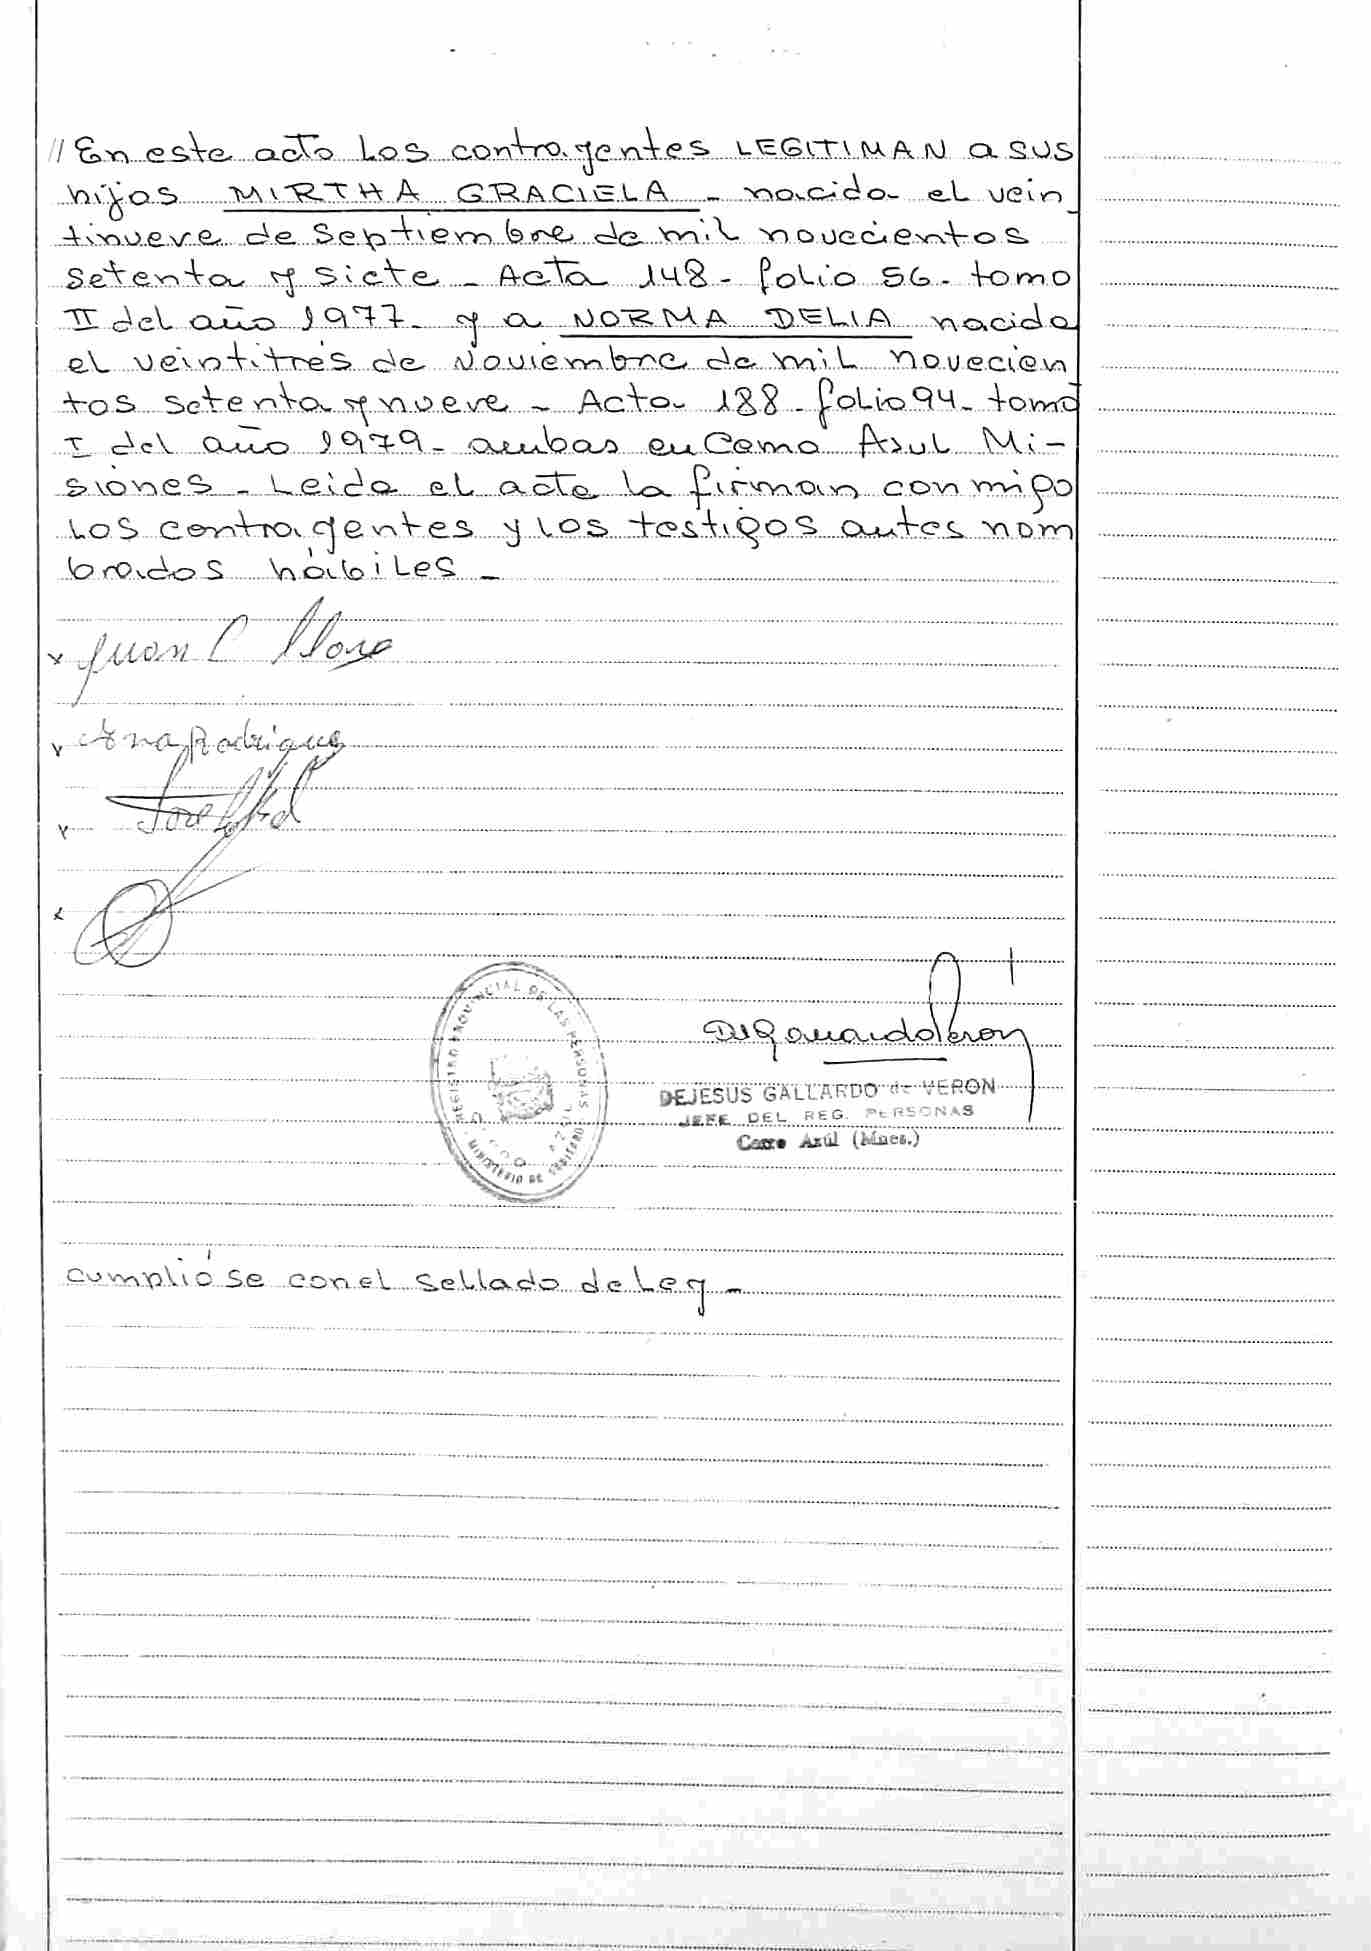 // En este acto los contrayentes LEGITIMAN a sus
hijas MIRTHA GRACIELA - nacida el vein
tinueve de Septiembre de mil novecientos
setenta y siete - Acta 148 - folio 56 - tomo
II del año 1977 - y a NORMA DELIA nacida
el veintitrés de Noviembre de mil novecien
tos setenta y nueve - Acta 188 - folio 94 - tomo
I del año 1979 - ambas en Cerro Azul Mi-
siones - Leida el acta la firman conmigo
los contrayentes y los testigos antes nom
brados hábiles -
x Juan C
x Ana Rodrigue
x Jose
x
REGISTRO PROVINCIAL DE LAS PERSONAS
MINISTERIO DE GOBIERNO
CERRO AZUL
DEJESUS GALLARDO de VERON
JEFE DEL REG. PERSONAS
Cerro Azúl (Mnes.)
cumplióse con el sellado de Ley -